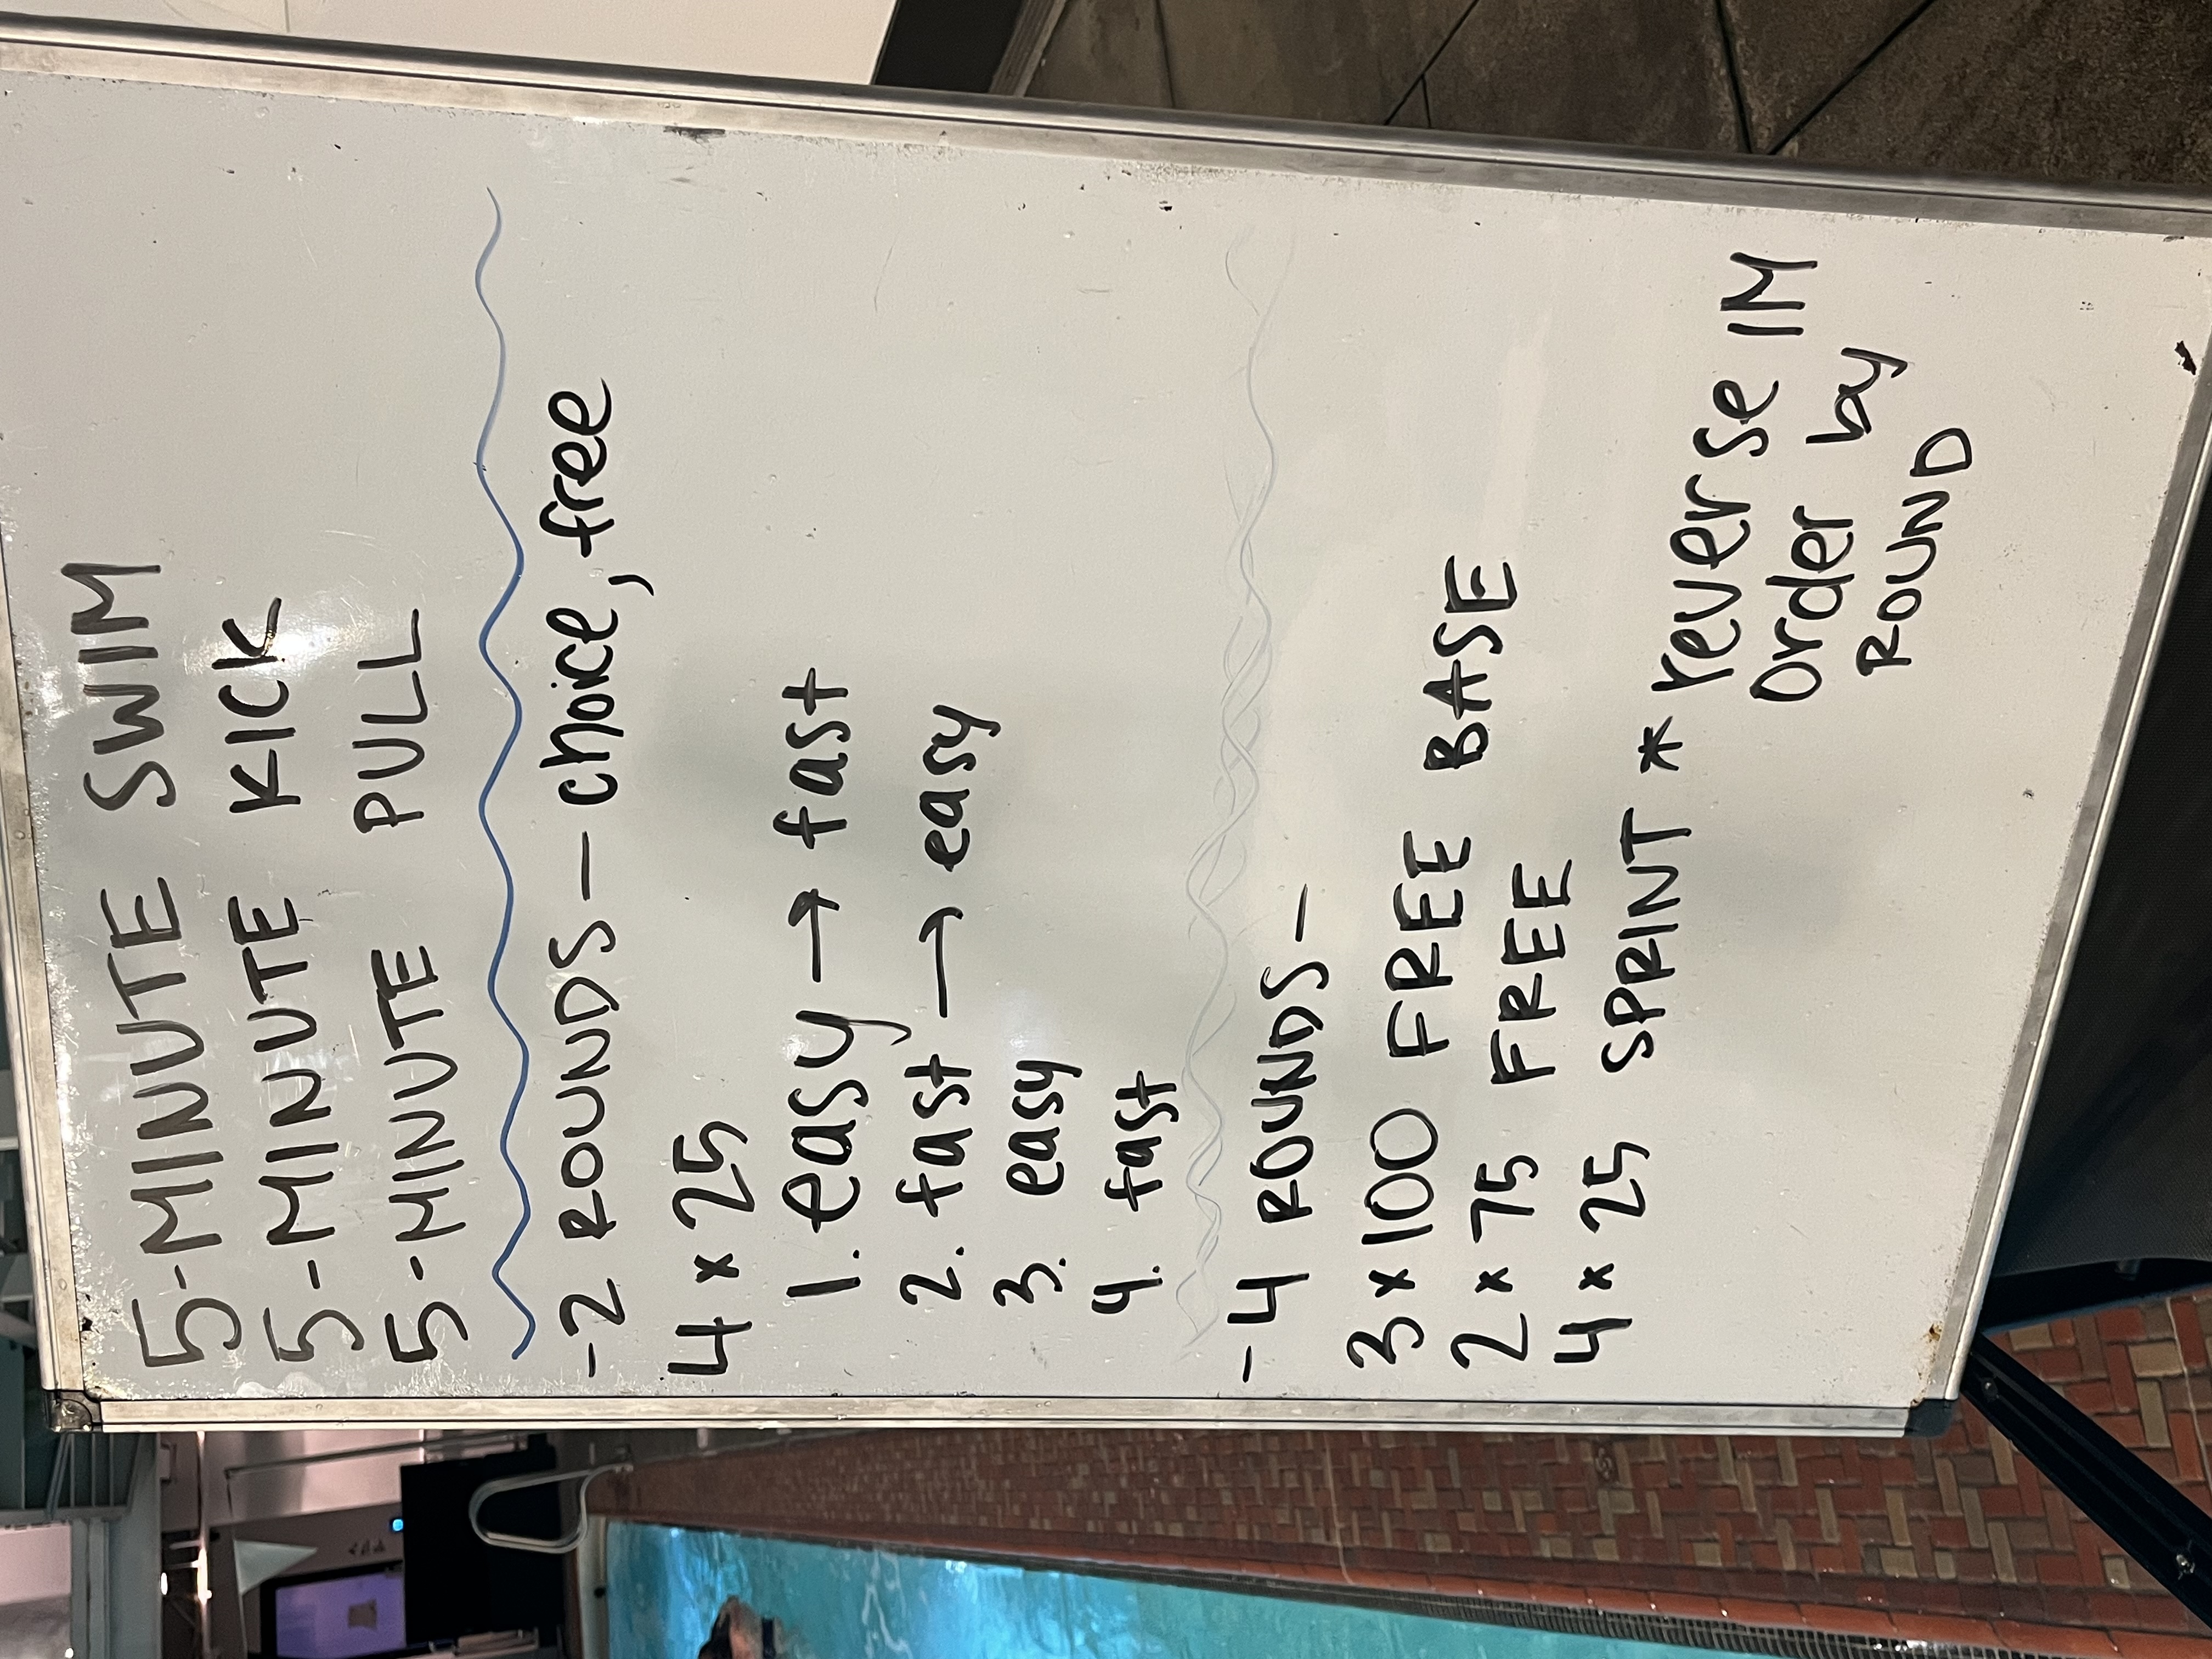 5-MINUTE SWIM
5-MINUTE KICK
5-MINUTE PULL
-2 ROUNDS- choice, free
4 x 25
1. easy → fast
2. fast → easy
3. easy
4. fast
-4 ROUNDS-
3 x 100 FREE BASE
2 x 75 FREE
4 x 25 SPRINT * reverse IM
order by
ROUND